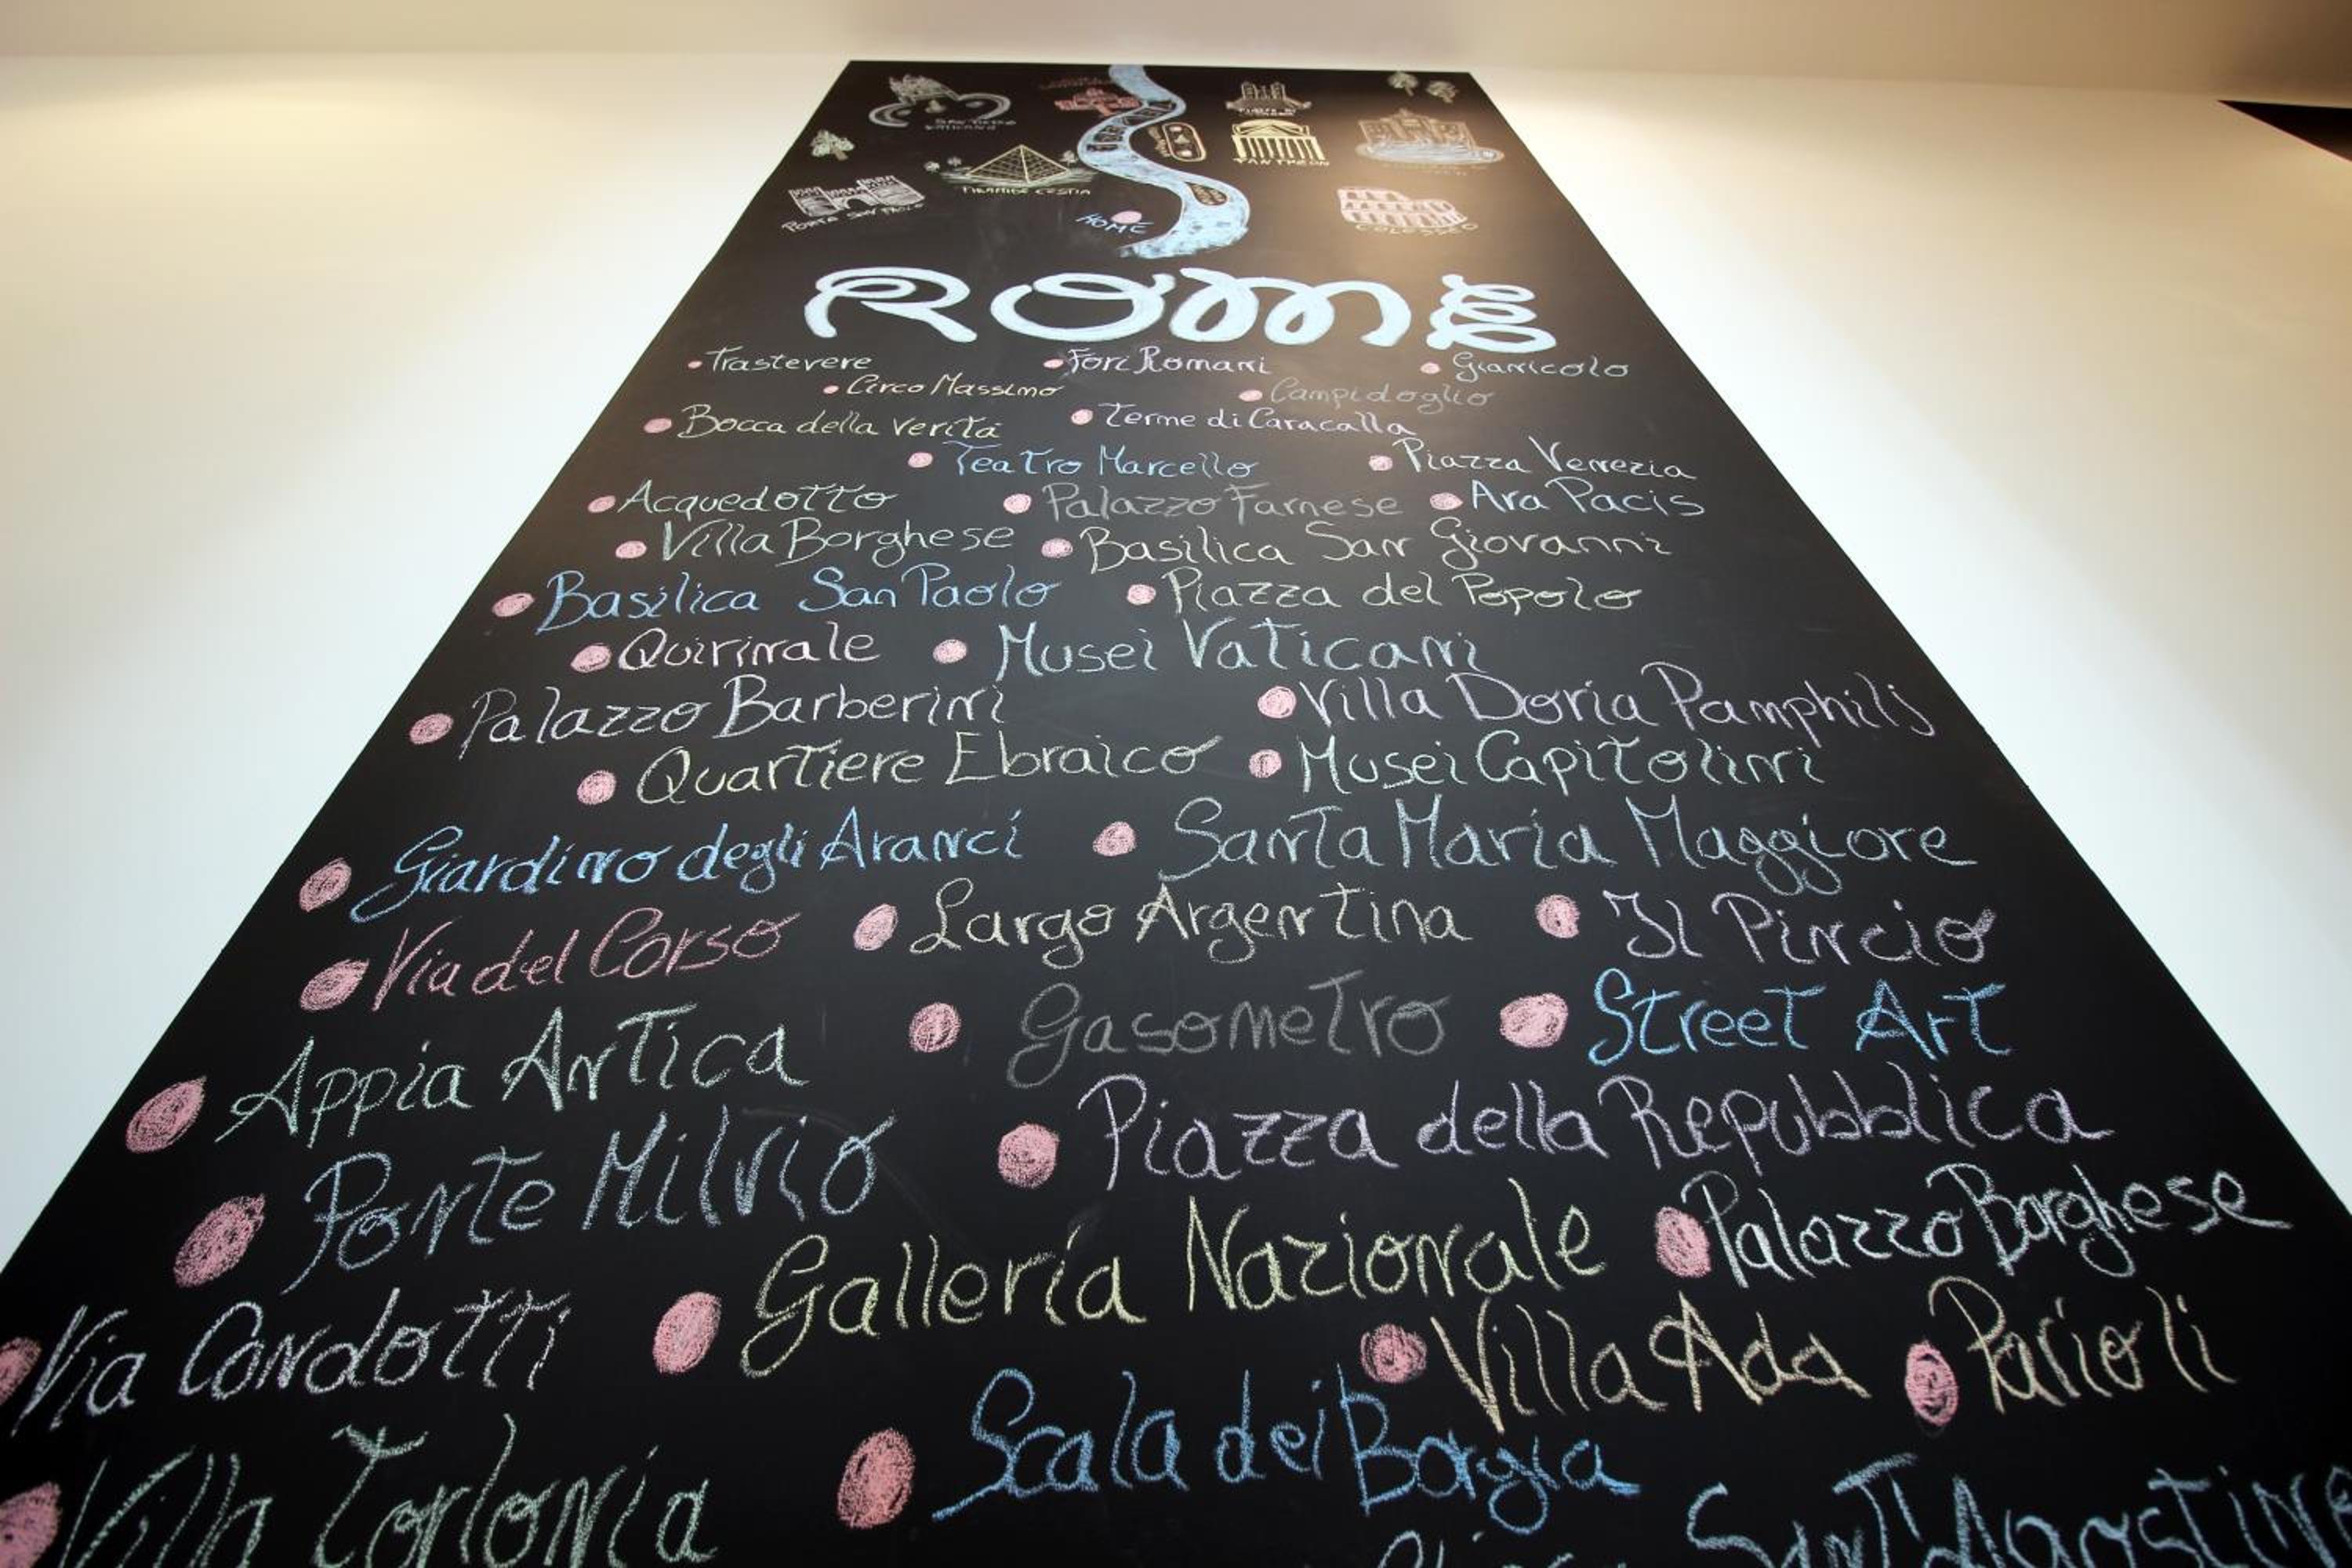 SAN PIETRO
VATICANO
PIAZZA DI
SPAGNA
PANTHEON
PIRAMIDE CESTIA
PORTA SAN PAOLO
HOME
COLOSSEO
ROME
Trastevere Fori Romani Gianicolo
Circo Massimo Campidoglio
Bocca della Verità Terme di Caracalla
Teatro Marcello Piazza Venezia
Acquedotto Palazzo Farnese Ara Pacis
Villa Borghese Basilica San Giovanni
Basilica San Paolo Piazza del Popolo
Quirinale Musei Vaticani
Palazzo Barberini Villa Doria Pamphilj
Quartiere Ebraico Musei Capitolini
Giardino degli Aranci Santa Maria Maggiore
Via del Corso Largo Argentina Il Pincio
Appia Antica Gasometro Street Art
Ponte Milvio Piazza della Repubblica
Galleria Nazionale Palazzo Borghese
Via Condotti Villa Ada Parioli
Villa Torlonia Scala dei Borgia
Sant'Agostino